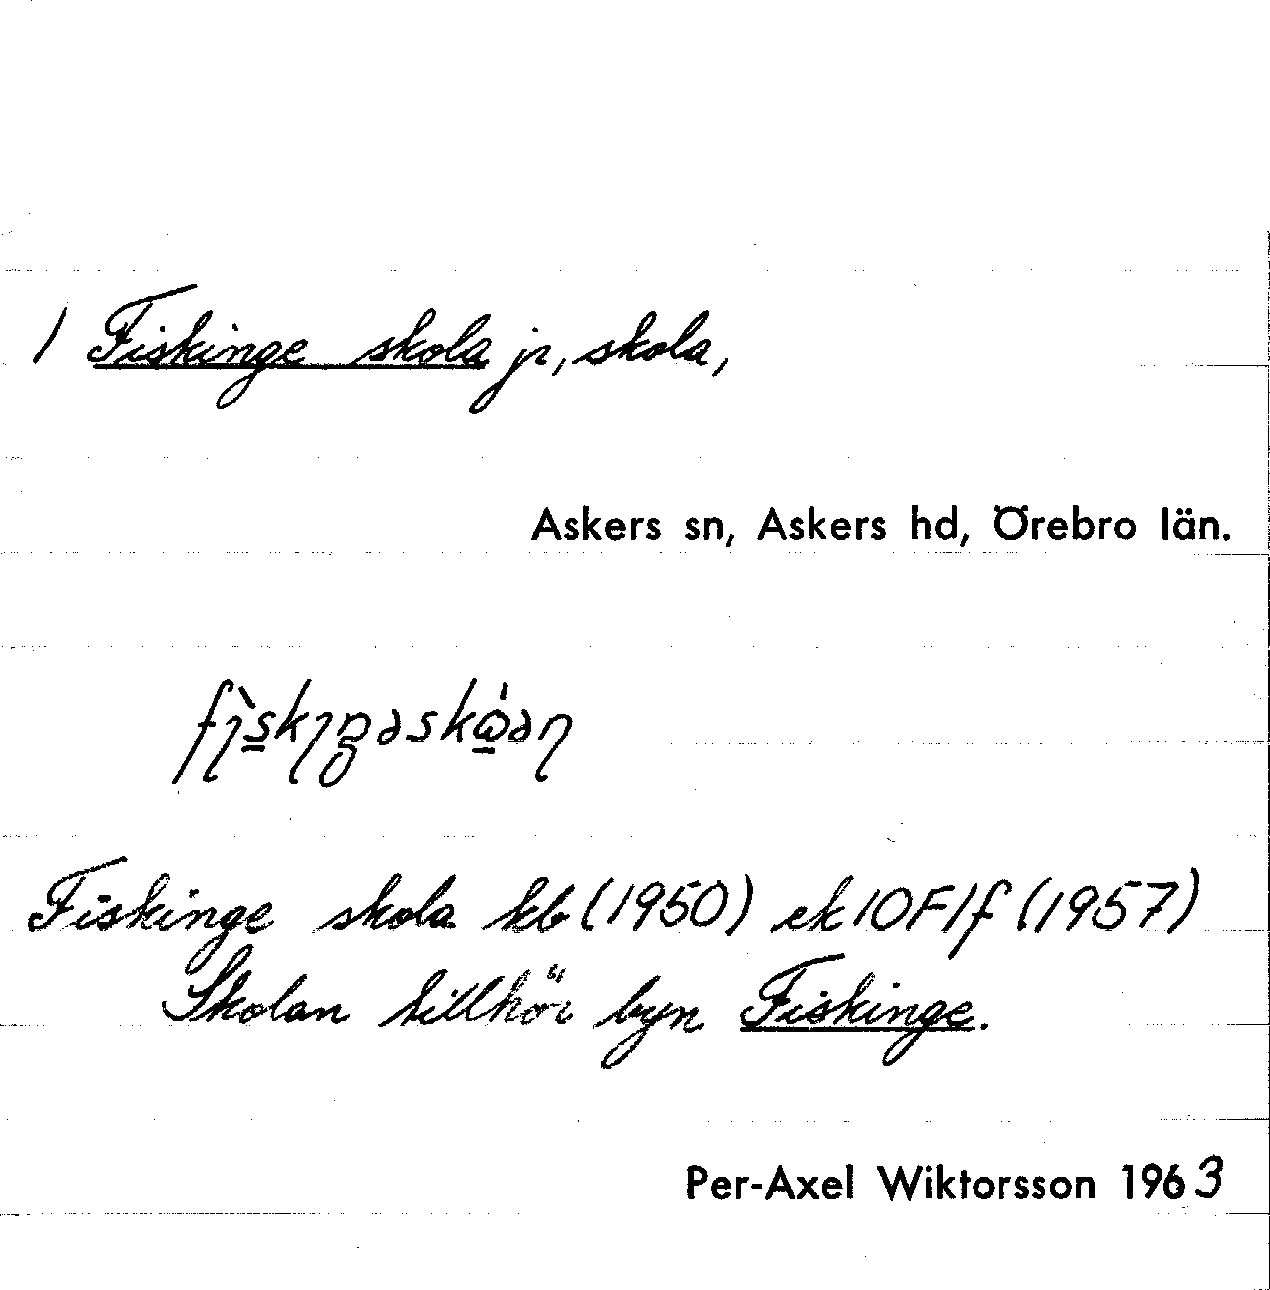 / Fiskinge skola jr, skola,
Askers sn, Askers hd, Örebro län.
Fiskinge skola kb (1950) ek 10F1f (1957)
Skolan tillhör byn Fiskinge.
Per-Axel Wiktorsson 1963